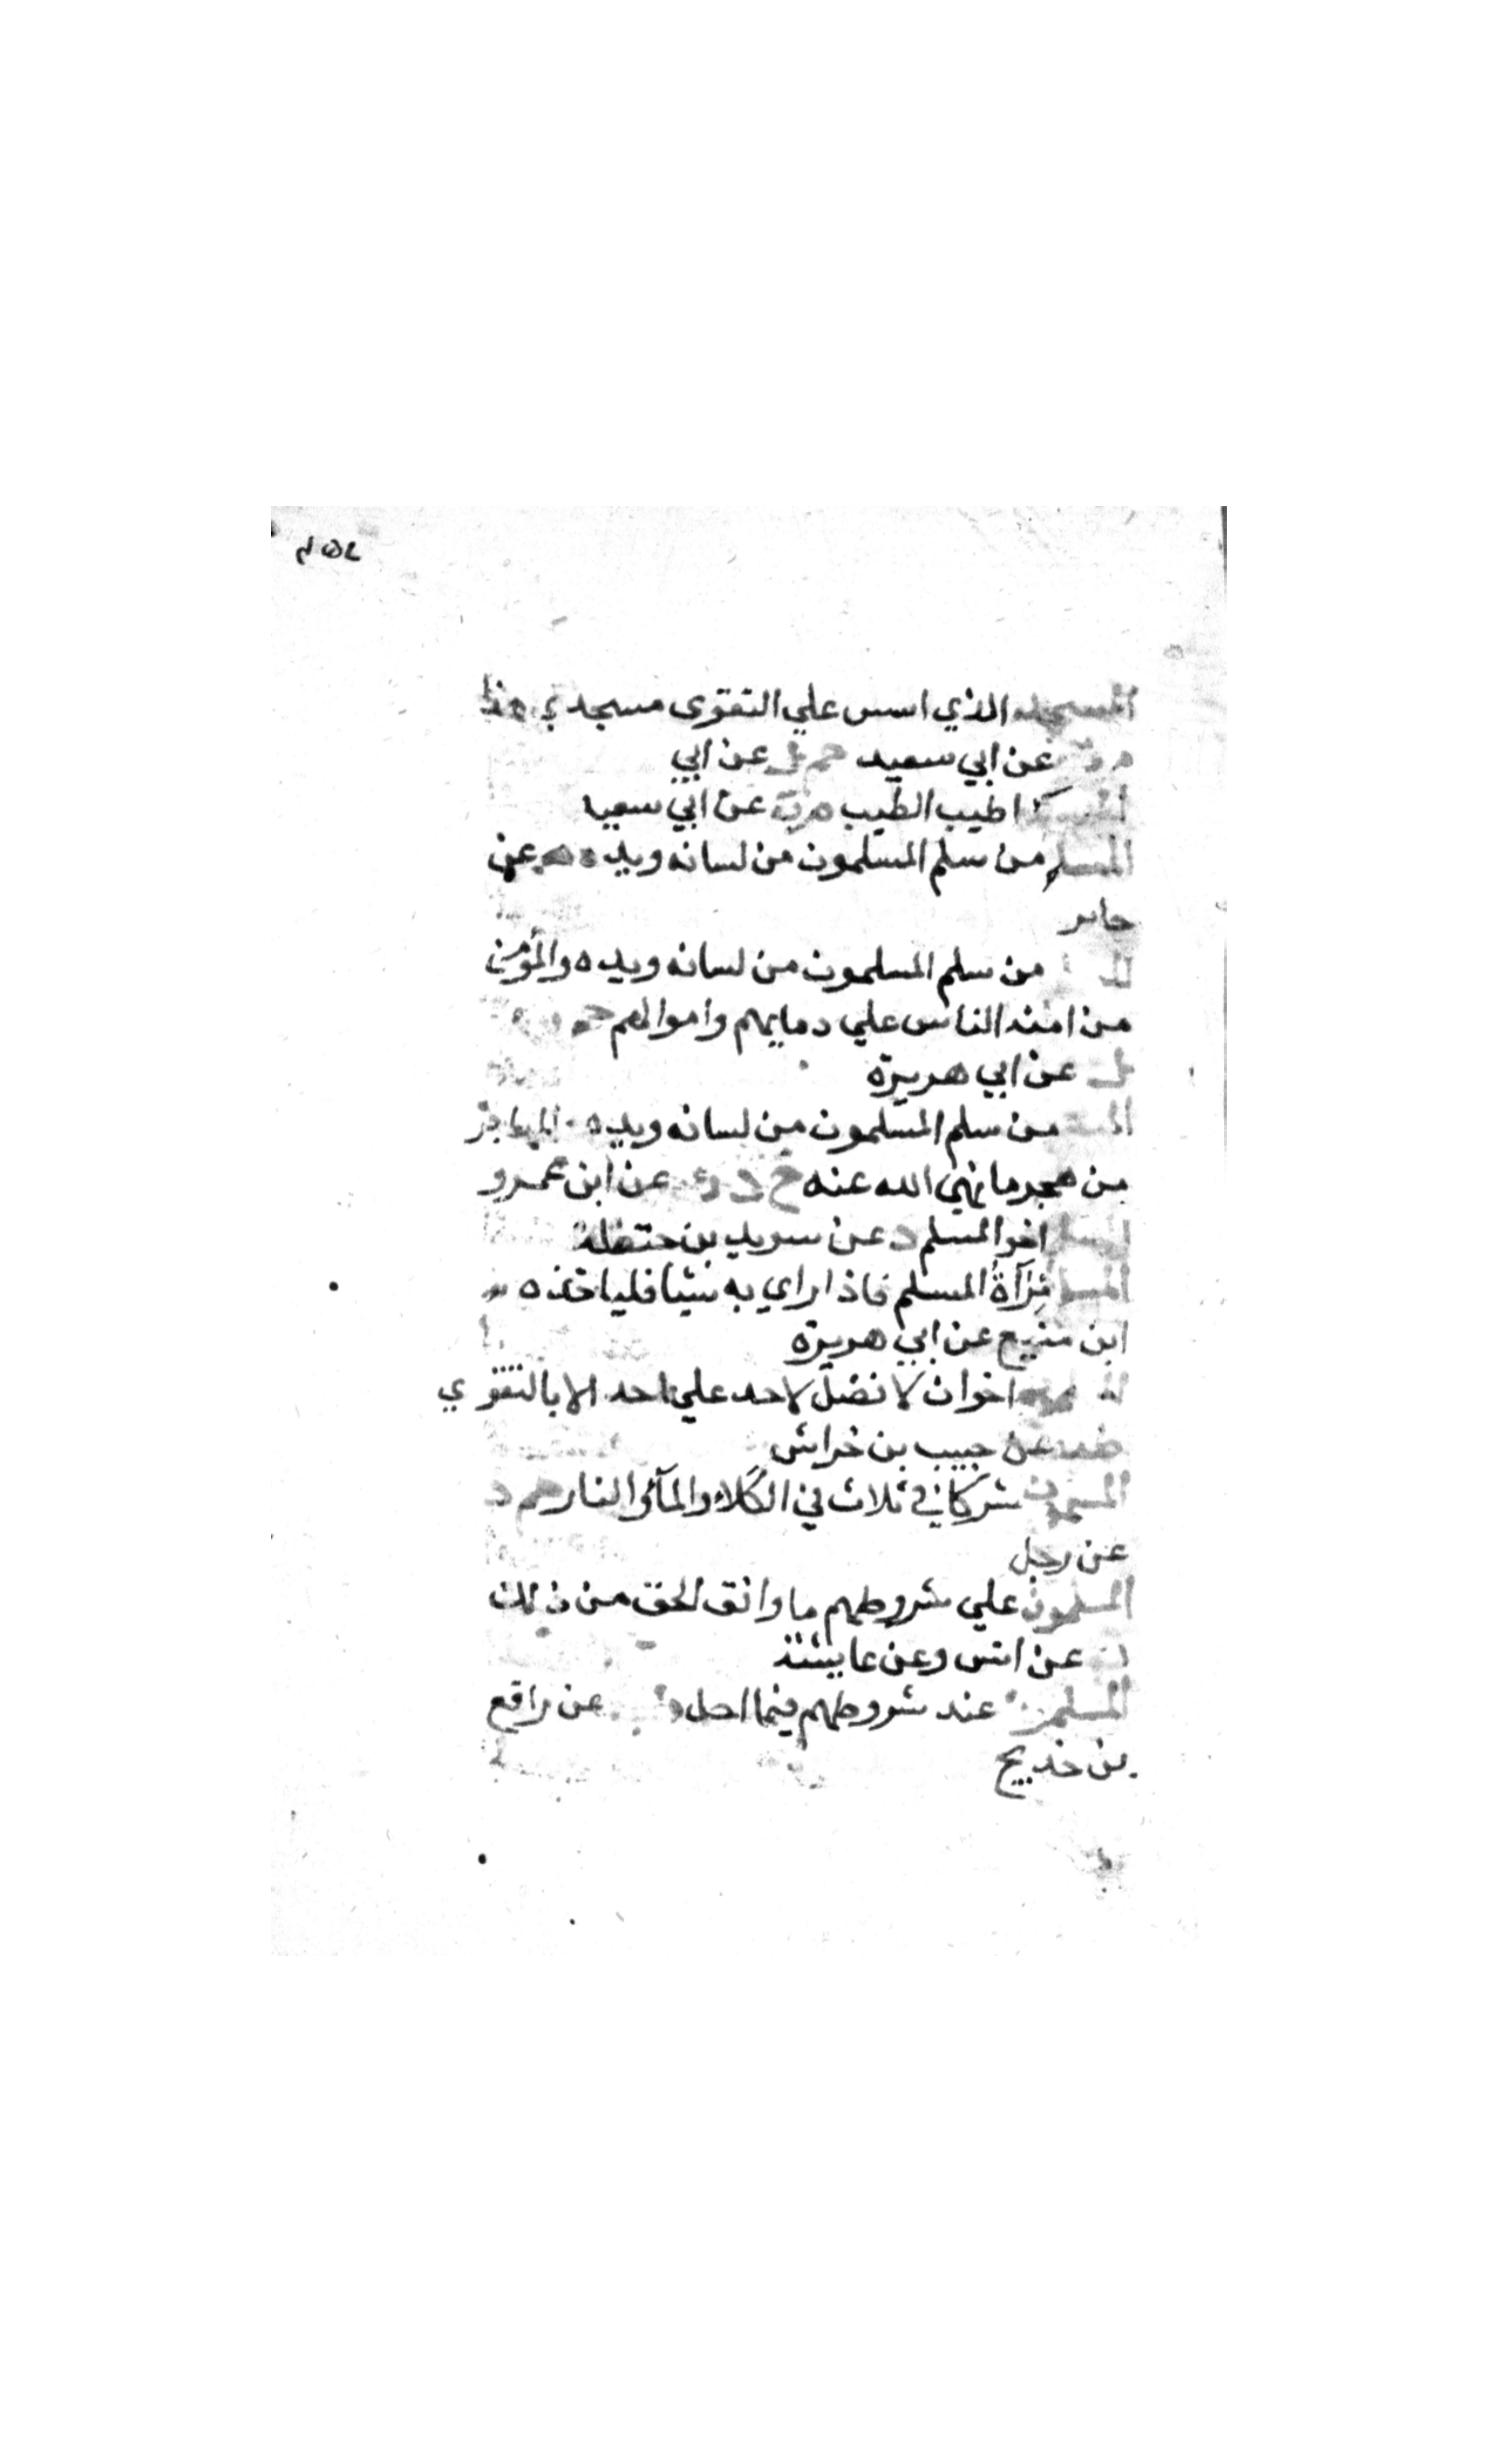 المسجد الذي اسس علي التقوى مسجدي هذا
م ت عن ابي سعيد حم ك عن ابي
المسك اطيب الطيب م ت عن ابي سعيد
المسلم من سلم المسلمون من لسانه ويده م عن
جابر
من سلم المسلمون من لسانه ويده والمؤمن
من امنه الناس علي دمايهم واموالهم حم
ك عن ابي هريرة
من سلم المسلمون من لسانه ويده المهاجر
من هجر ما نهي الله عنه خ د ن عن ابن عمرو
المسلم اخو المسلم د عن سويد بن حنظلة
المسلم مرآة المسلم فاذا راي به شيأ فلياخذه
ابن منيع عن ابي هريرة
اخوان لا فضل لاحد علي احد الا بالتقوي
عن حبيب بن خراش
المسلمون شركا في ثلاث في الكلاء والمآء والنار حم د
عن رجل
المسلمون علي شروطهم ما وافق الحق من ذلك
عن انس وعن عايشة
المسلمون عند شروطهم فيما احل عن رافع
بن خديج